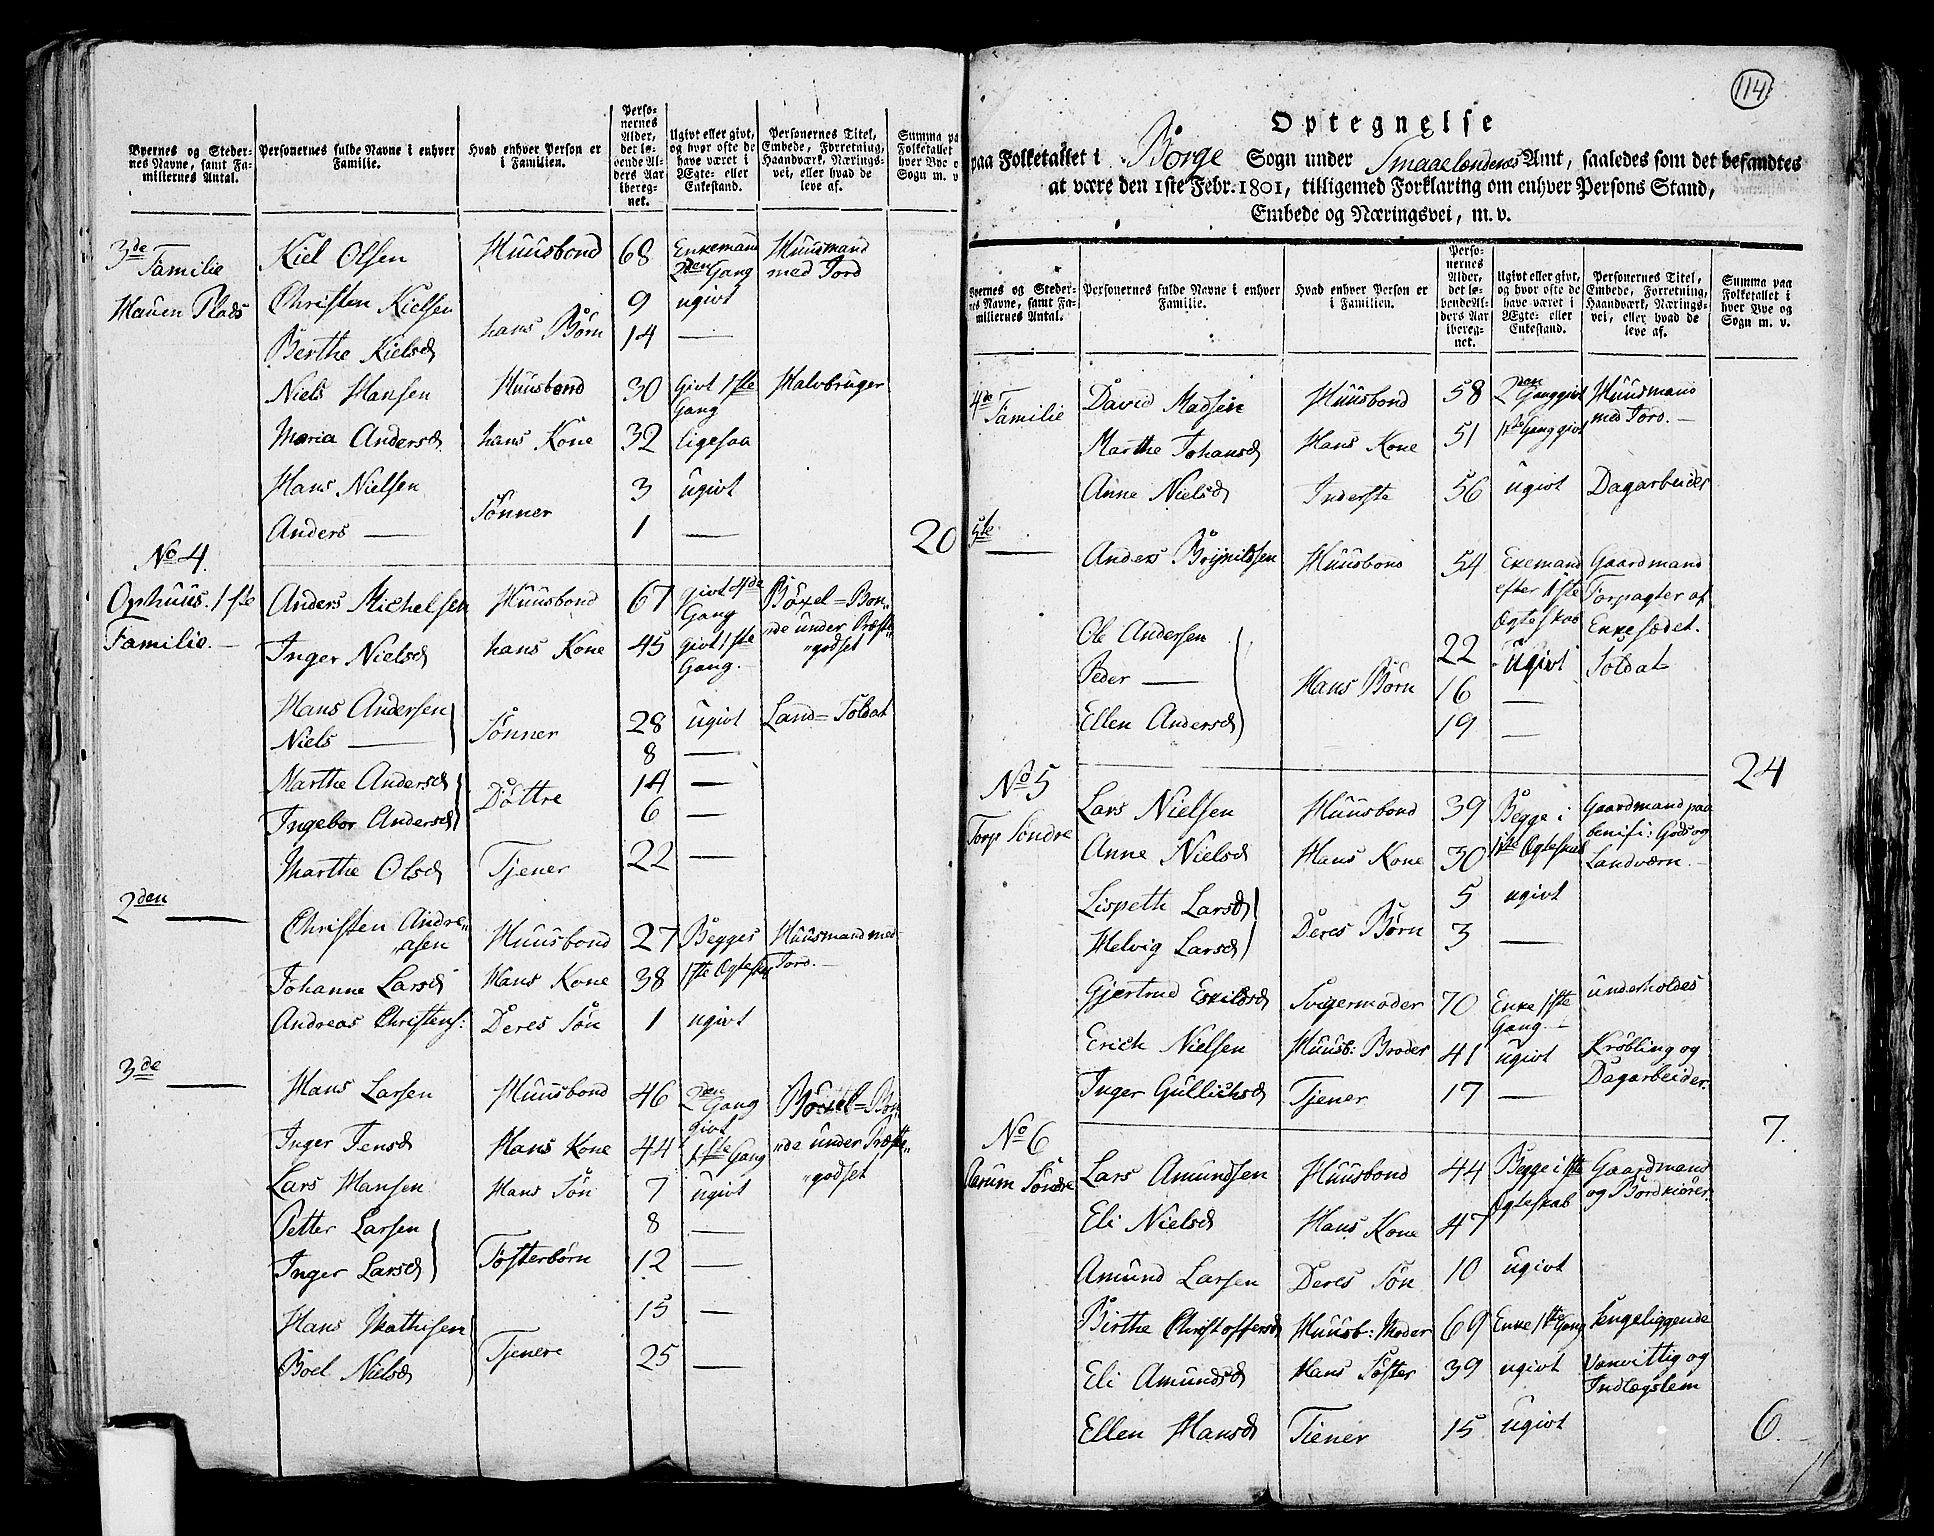 Byernes og Steder-
nes Navne, samt Fa-
miliernes Antal.
Personernes fulde Navne i enhver
Familie.
Hvad enhver Person er
i Familien.
Perso-
nernes
Alder,
det lø-
bende Al-
ders Aar
ibereg-
net.
Ugivt eller givt,
og hvor ofte de
have været i
Ægte- eller
Enkestand.
Personernes Titel,
Embede, Forretning,
Haandværk, Nærings-
vei, eller hvad de
leve af.
Summa pa
Folketallet
hver Bye o
Sogn m. v.
3de Familie Kiel Olsen Huusbond 68 Enkemand Huusmand
2den Gang med Jord
Hauen Plads Christen Kielsen 9 ugivt
hans Børn
Berthe Kielsd 14 —
Niels Hansen Huusbond 30 Givt 1ste Halvbruger
Gang
Maria Andersd hans Kone 32 ligesaa
Hans Nielsen 3 ugivt
Sønner
Anders — 1 — 20
No 4.
Ophuus. 1ste Anders Michelsen Huusbond 67 givt 4de Böxel=Bon„
Gang „de under Præste„
Familie. — Inger Nielsd hans Kone 45 Givt 1ste „godset
Gang. —
Hans Andersen 28 ugivt Land=Soldat
Sønner
Niels — 8 —
Marthe Andersd 14 —
Døttre
Ingebor Andersd 6 —
Marthe Olsd Tjener 22 —
2den — Christen Andre„
„asen Huusbond 27 Begges Huusmand med
Johanne Larsd Hans Kone 38 1ste Ægtesk Jord. —
Andreas Christens: Deres Søn 1 ugivt
3de — Hans Larsen Huusbond 46 2den Gang Böxel=Bon
givt
Inger Jensd Hans Kone 44 1ste Gang „de under Præste„
Lars Hansen Hans Søn 7 ugivt „godset
Petter Larsen 8 —
Fosterbørn
Inger Larsd 12 —
Hans Mathisen 15 —
Tjenere
Boel Nielsd 25 —
114
Optegnelse
paa Folketallet i Borge Sogn under Smaalendenes Amt, saaledes som det befandtes
at være den 1ste Febr. 1801, tilligemed Forklaring om enhver Persons Stand,
Embede og Næringsvei, m. v.
Byernes og Steder-
nes Navne, samt Fa-
miliernes Antal.
Personernes fulde Navne i enhver
Familie.
Hvad enhver Person er
i Familien.
Perso-
nernes
Alder,
det lø-
bende Al-
ders Aar
ibereg-
net.
Ugivt eller givt,
og hvor ofte de
have været i
Ægte- eller
Enkestand.
Personernes Titel,
Embede, Forretning,
Haandværk, Nærings-
vei, eller hvad de
leve af.
Summa paa
Folketallet i
hver Bye og
Sogn m. v.
4de Familie David Madsen Huusbond 58 2den Gang givt Huusmand
med Jord. —
Marthe Johansd Hans Kone 51 1ste Gang givt
Anne Nielsd Inderste 56 ugivt Dagarbeider
5te — Anders Brynildsen Huusbond 54 Ekemand Gaardmand
efter 1ste Forpagter af
Ægteskab Enkesædet.
Ole Andersen 22 ugivt Soldat
Peder — Hans Børn 16 —
Ellen Andersd 19 —
24
No 5
Torp Søndre Lars Nielsen Huusbond 39 Begge i Gaardmand paa
Anne Nielsd Hans Kone 30 1ste Ægteskab benifi: Gods og
Landværn. —
Lispeth Larsd 5 ugivt
Deres Børn
Helvig Larsd 3 —
Gjertrud Eskildsd Svigermoder 70 Enke 1ste underholdes
Gang. —
Erich Nielsen Huusb: Broder 41 ugivt Krøbling og
Dagarbeider.
Inger Gullichsd Tjener 17 —
7.
No 6
Aarum Søndre Lars Amundsen Huusbond 44 Begge i 1ste Gaardmand
Ægteskab og Bordkiører.
Eli Nielsd Hans Kone 47
Amund Larsen Deres Søn 10 ugivt
Birthe Christoffersd Huusb: Moder 69 Enke 1ste Gang Sengeliggende
Eli Amundsd Hans Søster 39 ugivt Vanvittig og
Indlægslem
Ellen Hansd Tiener 15 ugivt
6.